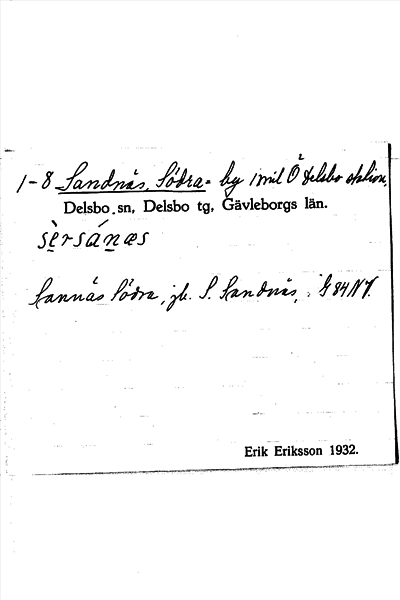 1-8 Sandnäs, Södra = by 1 mil Ö Delsbo station,
Delsbo sn, Delsbo tg, Gävleborgs län.
sèrsánæs
Sannäs Södra, jb. S. Sandnäs, G 84 NV.
Erik Eriksson 1932.